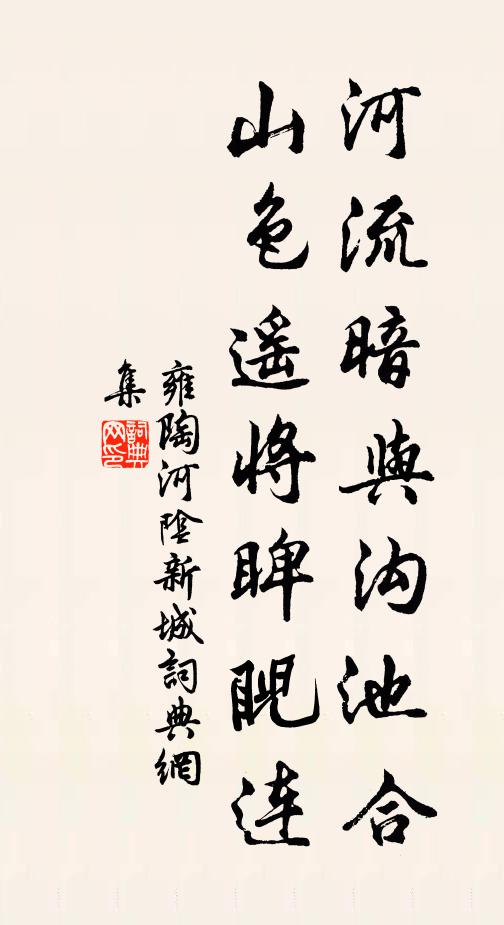 河流暗與沟池合
山色遥將睥睨连
雍陶河陰新城詞典網
集
詞典网印